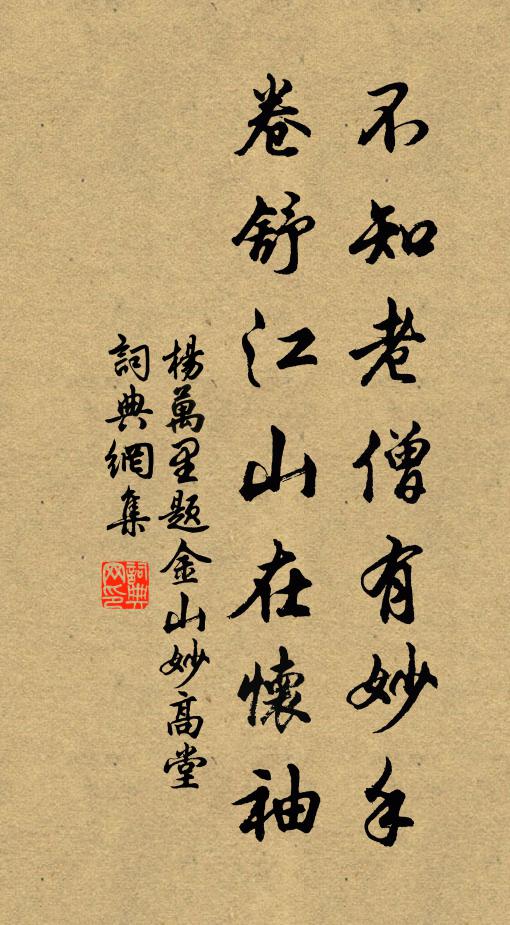 不知老僧有妙手
卷舒江山在懷袖
楊萬里題金山妙高堂
詞典網集
詞典网印